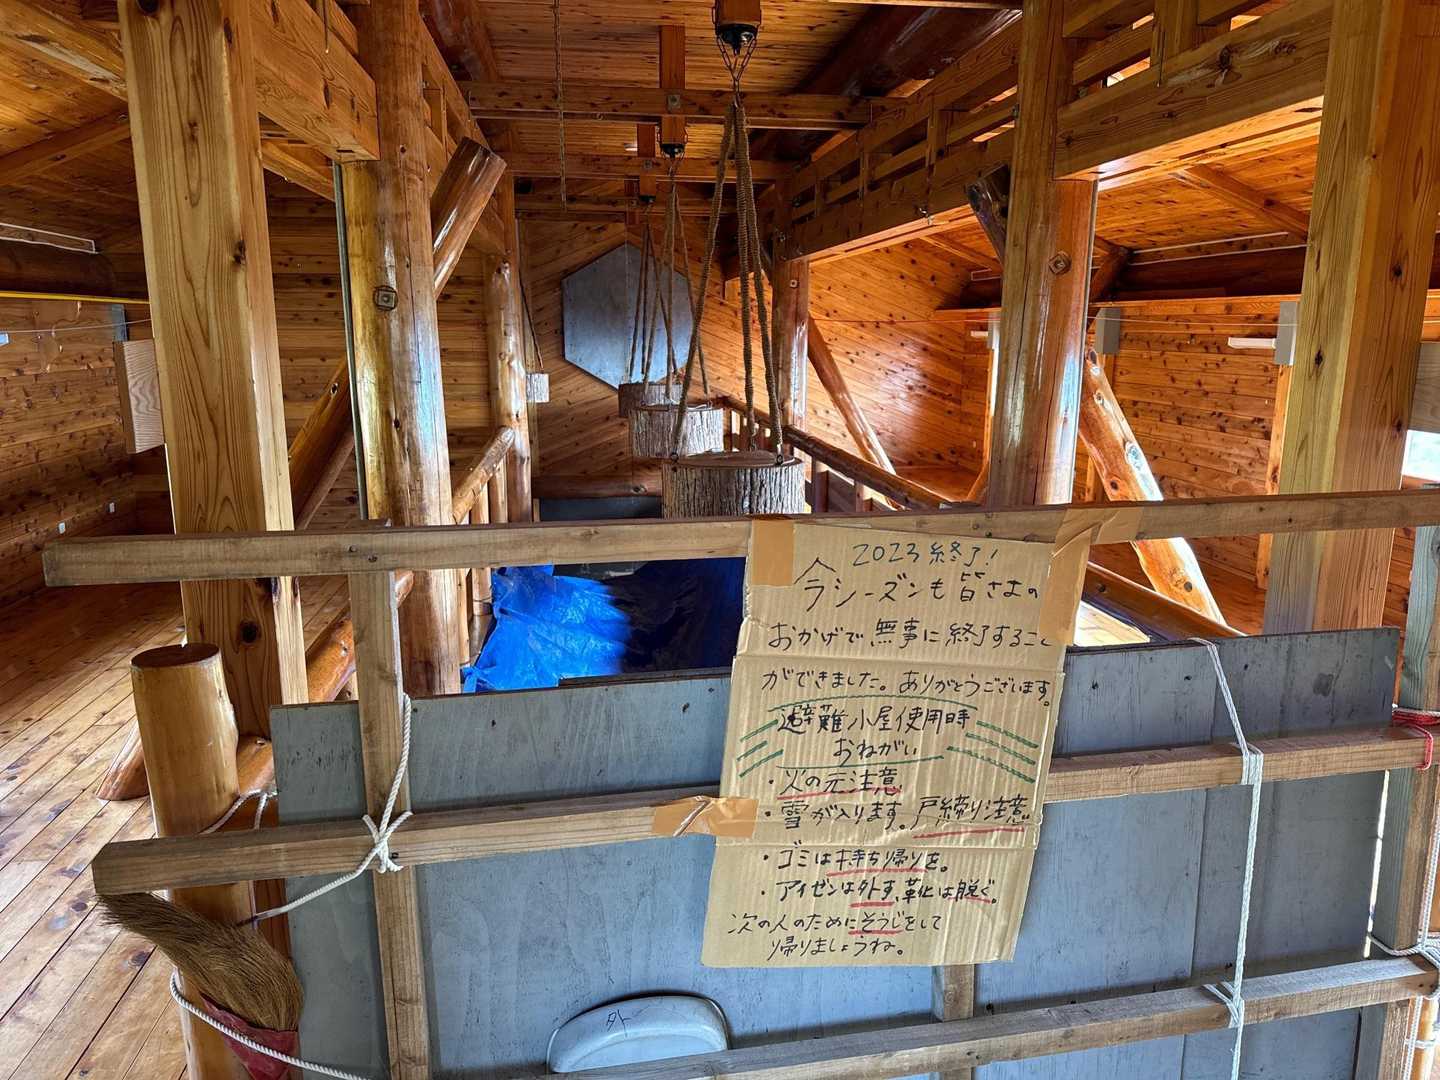 2023 終了!
今シーズンも皆さまの
おかげで無事に終了すること
ができました。ありがとうございます。
避難小屋使用時
おねがい
・火の元注意
・雪が入ります。戸締り注意
・ゴミは持ち帰りを。
・アイゼンは外す、靴は脱ぐ。
次の人のためにそうじをして
帰りましょうね。
外